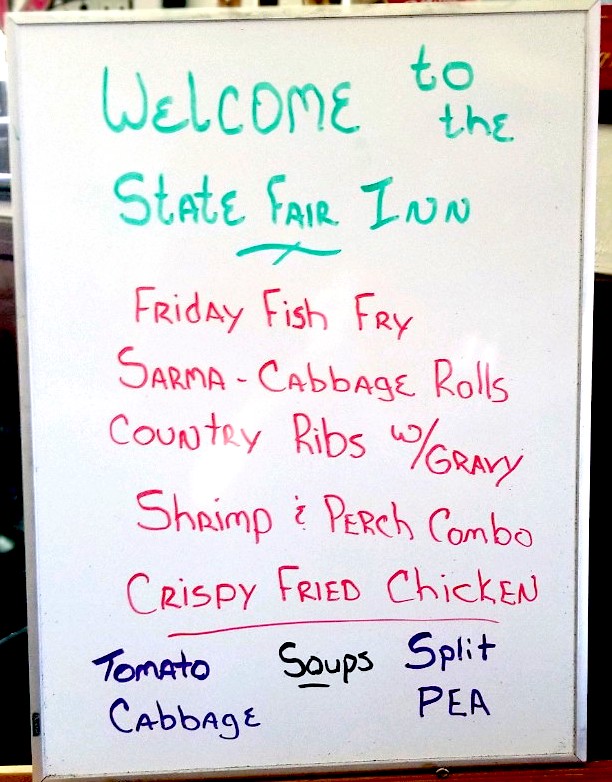 WElCOME to
the
StatE FAIR INN
FRiday Fish FRy
SARMA - CabbagE Rolls
COUNtRy Ribs w/GRAVy
ShRimp & PERCh Combo
CRISPy FRIED ChickEN
Tomato Soups Split
CabbagE PEA